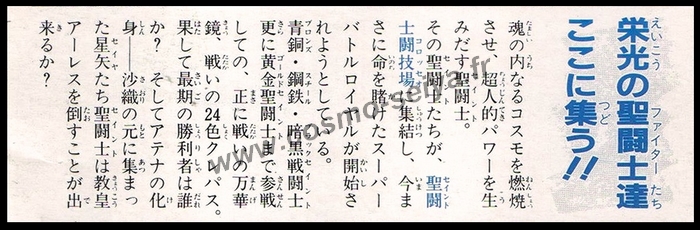 栄光の聖闘士達
ここに集う!!
えいこう ファイター たち
つど
魂の内なるコスモを燃焼
させ、超人的パワーを生
みだす聖闘士。
その聖闘士たちが、聖闘
士闘技場に集結し、今ま
さに命を賭けたスーパー
バトルロイヤルが開始さ
れようとしている。
青銅・鋼鉄・暗黒戦闘士
更に黄金聖闘士まで参戦
しての、正に戦いの万華
鏡、戦いの24色クレパス。
果して最期の勝利者は誰
か? そしてアテナの化
身——沙織の元に集まっ
た星矢たち聖闘士は教皇
アーレスを倒すことが出
来るか?
www.cosmo-seiya.fr